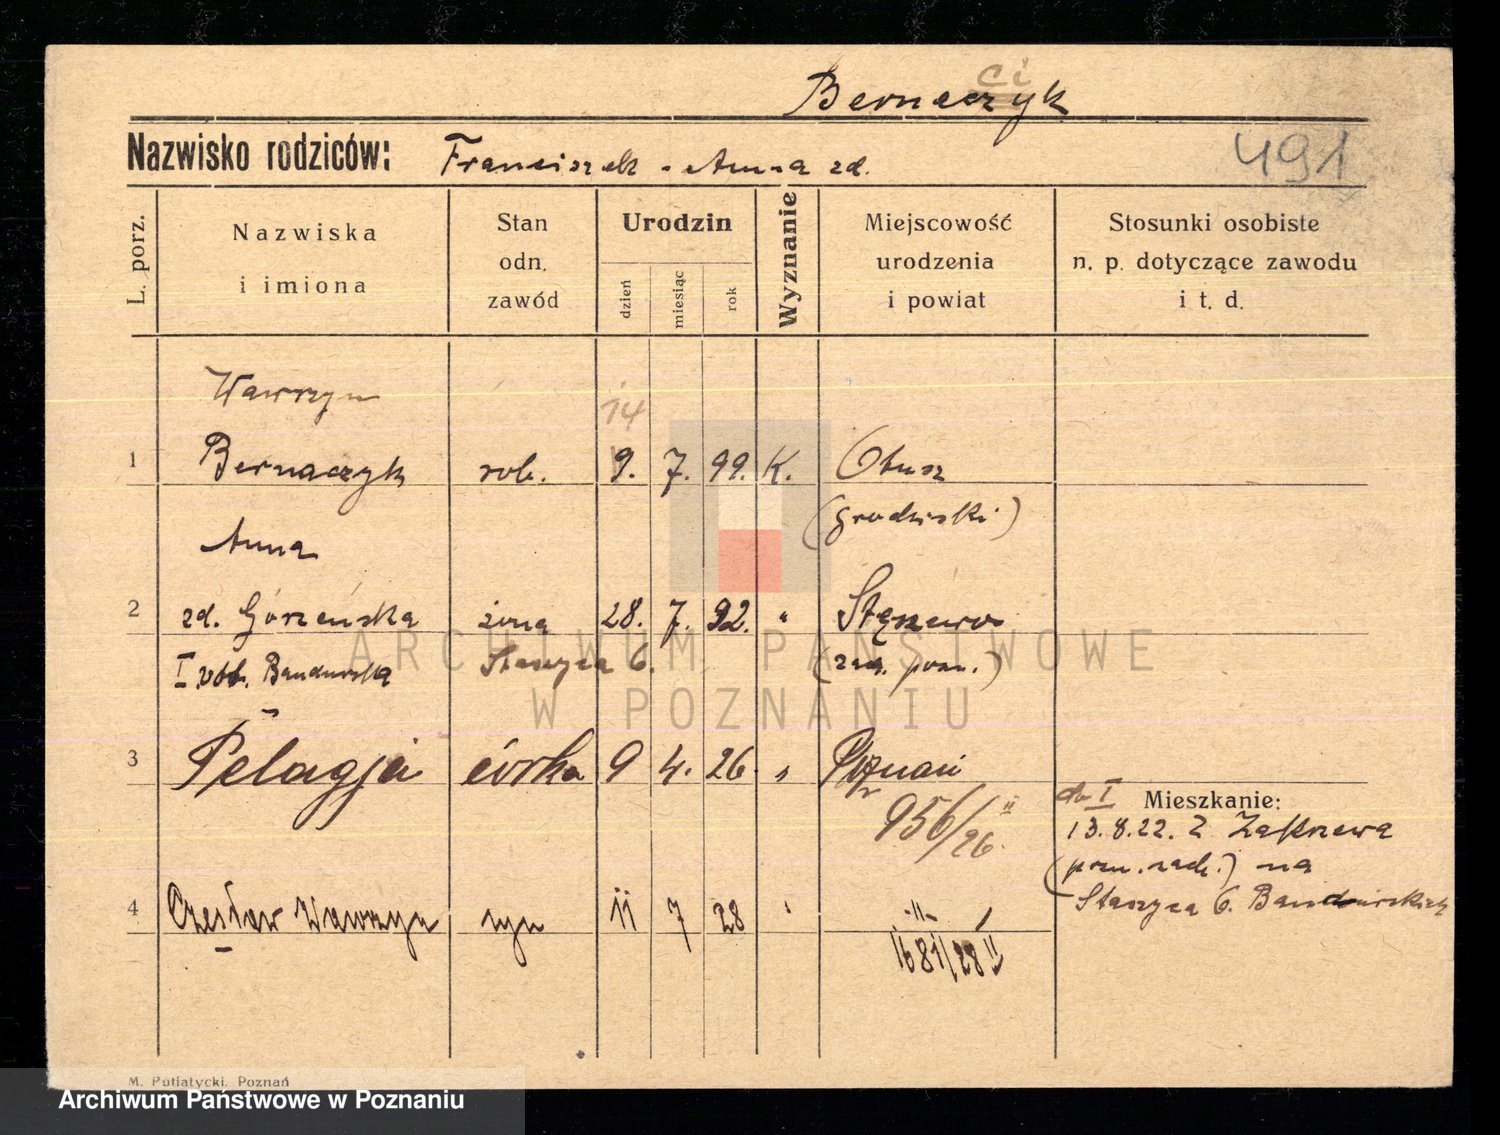 ci
Bernaczyk
Nazwisko rodziców: Franciszek - Anna zd.
491
L. porz.
Nazwiska
i imiona
Stan
odn.
zawód
Urodzin
dzień
miesiąc
rok
Wyznanie
Miejscowość
urodzenia
i powiat
Stosunki osobiste
n. p. dotyczące zawodu
i t. d.
Wawrzyn
14
1 Bernaczyk rob. 9. 7. 99. K. Otusz
(grodziski)
Anna
2 zd. Górzeńska żona 28. 7. 92. " Stęszewo
I vot. Bandurska Staszyca 6. (zach. pozn.)
3 Pelagja córka 9 4. 26. " Poznań
956/26 II
do I Mieszkanie:
13.8.22. z Zakrzewa
(pozn. zach.) na
Staszyca 6. Bandurskich
4 Czesław Wawrzyn syn 11 7 28 " -"-
1681/28 II
ARCHIWUM PAŃSTWOWE
W POZNANIU
M. Putiatycki, Poznań
Archiwum Państwowe w Poznaniu